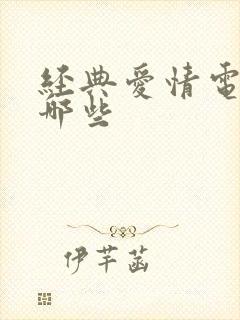 經典愛情電
哪些
伊芊菡